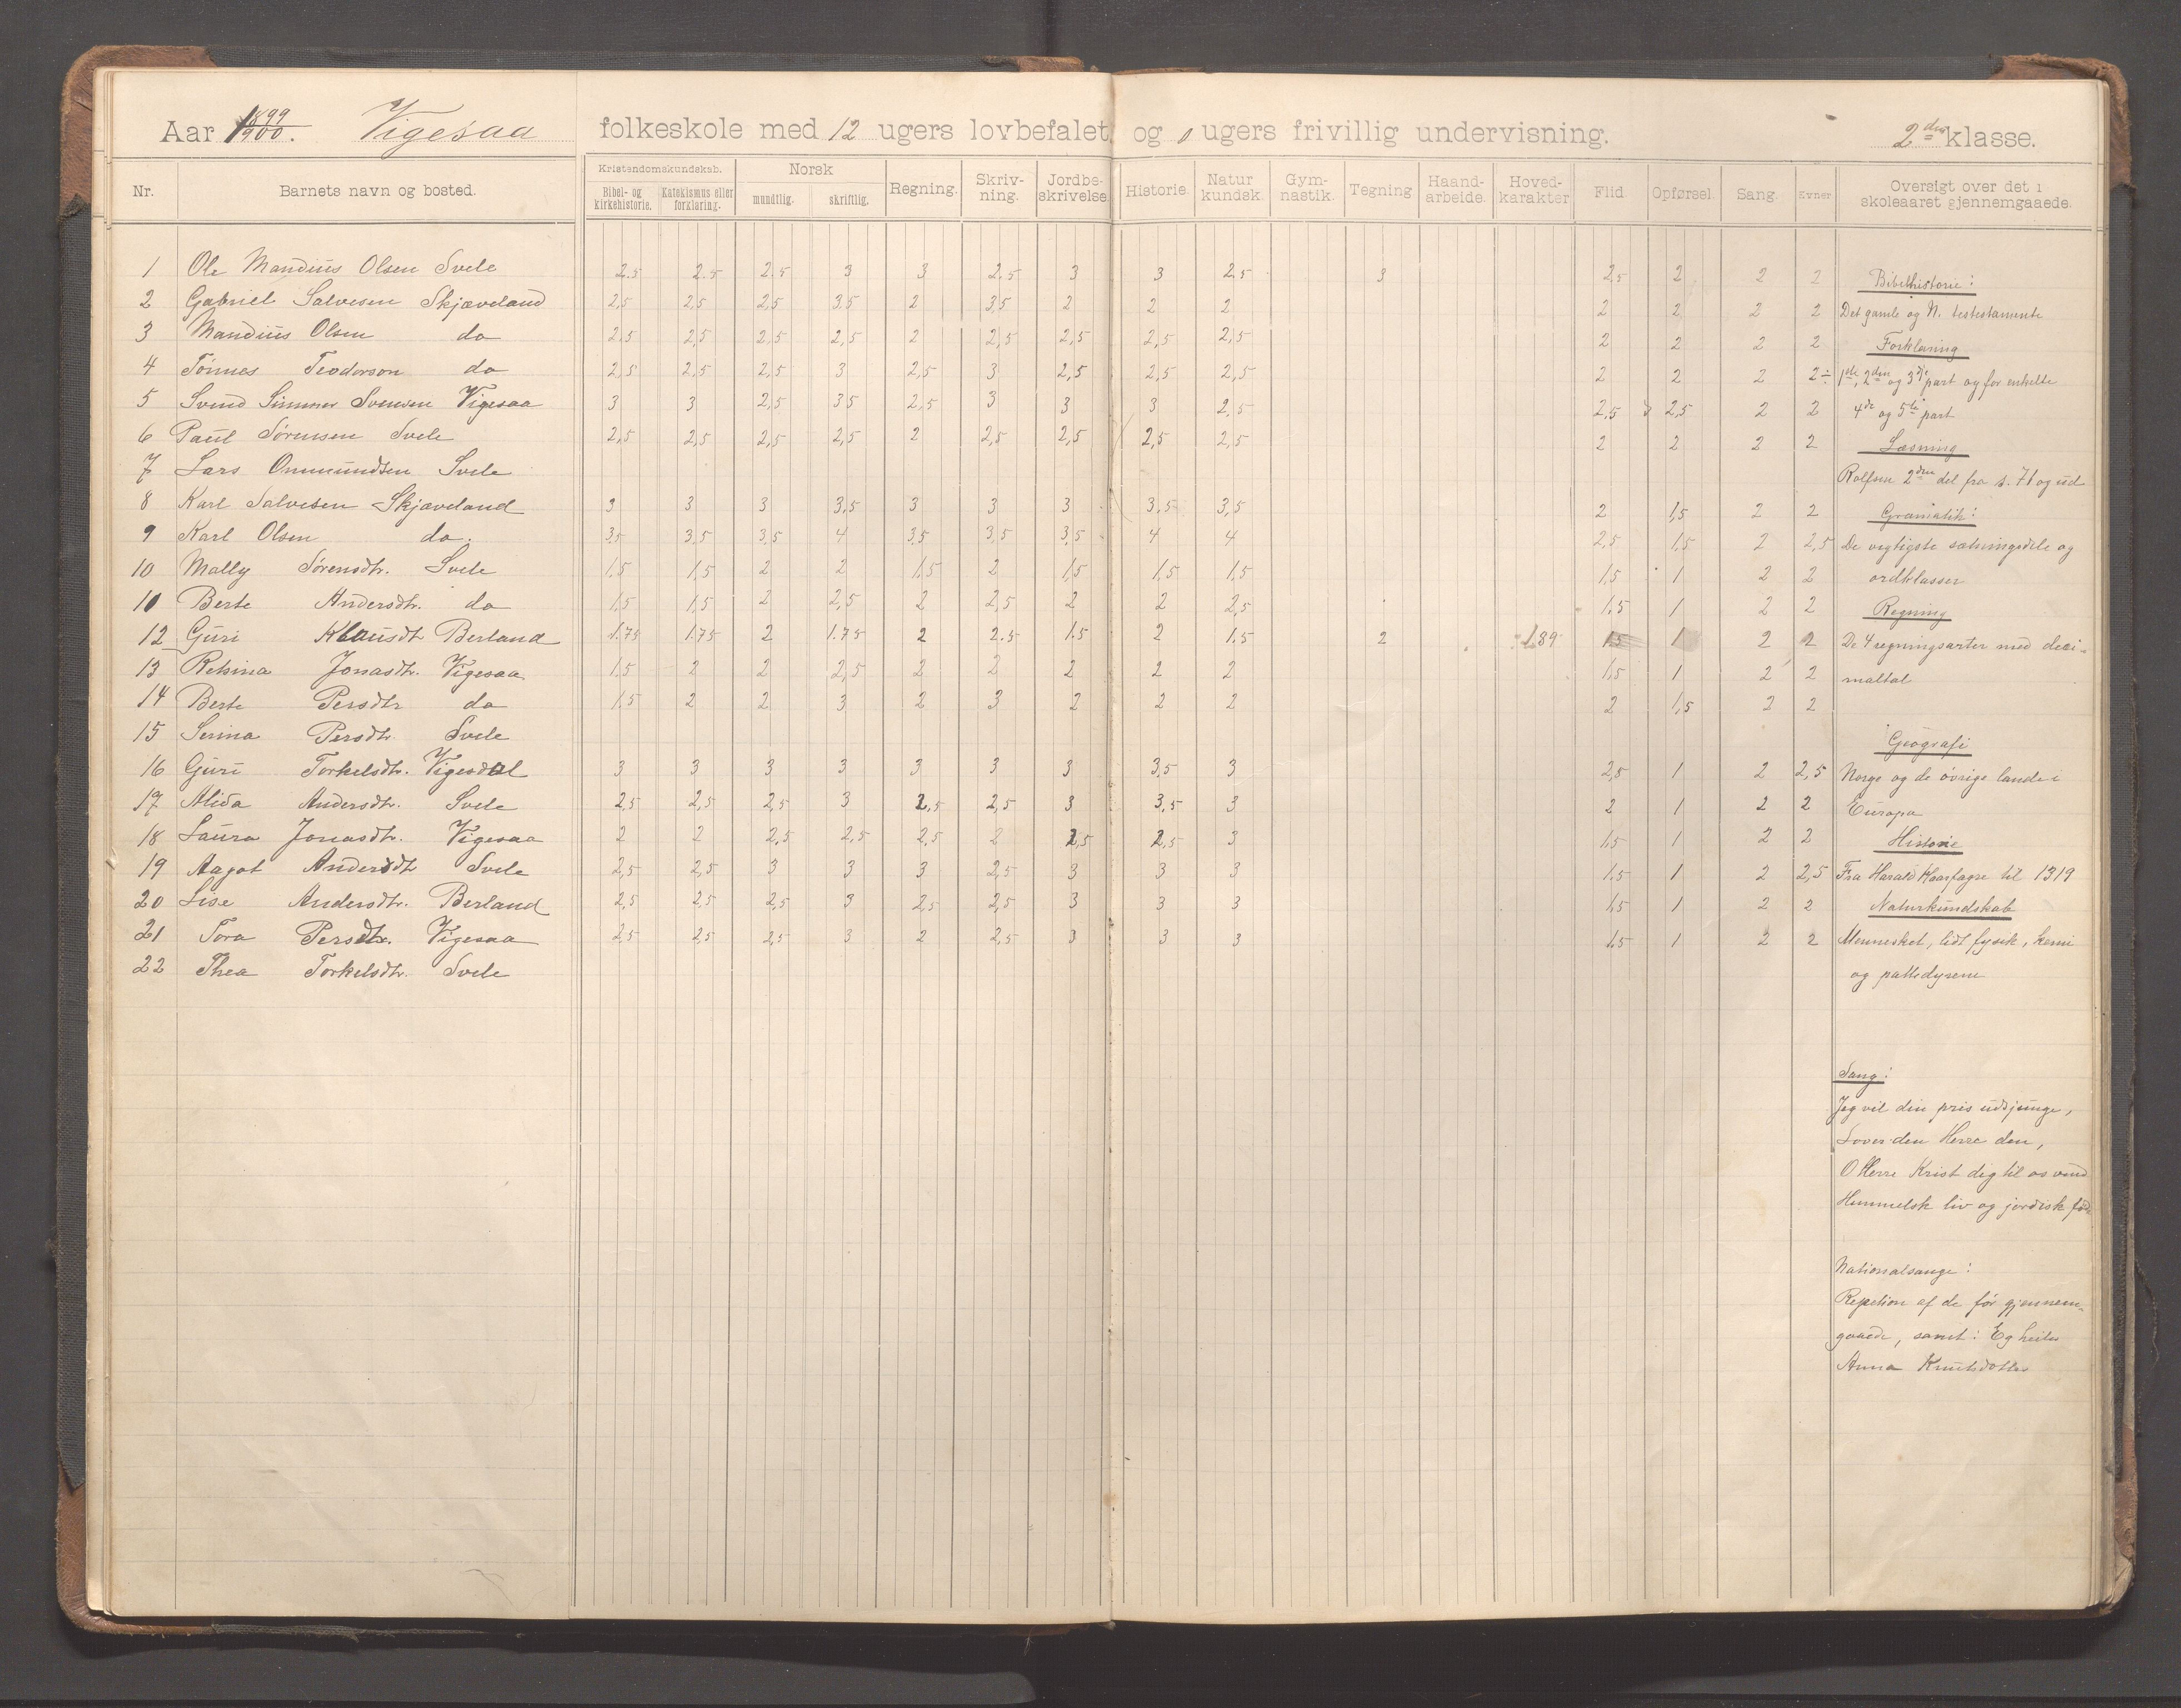 Aar 1899/1900. Vigesaa folkeskole med 12 ugers lovbefalet og 0 ugers frivillig undervisning. 2den klasse.
Nr. Barnets navn og bosted. Kristendomskundskab. Bibel- og kirkehistorie. Katekismus eller forklaring. Norsk mundtlig. skriftlig. Regning. Skriv-ning. Jordbe-skrivelse. Historie. Natur kundsk. Gym-nastik. Tegning Haand-arbeide. Hoved-karakter Flid. Opførsel Sang. Evner Oversigt over det i skoleaaret gjennemgaaede.
1 Ole Mandius Olsen Svele 2.5 2.5 2.5 3 3 2.5 3 3 2.5 3 2,5 2 2 2
2 Gabriel Salvesen Skjæveland 2,5 2,5 2,5 3,5 2 3,5 2 2 2 2 2 2 2
3 Mandius Olsen do 2.5 2,5 2,5 2,5 2 2,5 2,5 2,5 2,5 2 2 2 2
4 Tønnes Teodorson do 2,5 2,5 2,5 3 2,5 3 2,5 2,5 2,5 2 2 2 2÷
5 Svend Simmer Svensen Vigesaa 3 3 2,5 3,5 2,5 3 3 3 2,5 2,5 2,5 2 2
6 Paul Sørensen Svele 2,5 2,5 2,5 2,5 2 2,5 2,5 2,5 2,5 2 2 2 2
7 Lars Ommundsen Svele
8 Karl Salvesen Skjæveland 3 3 3 3,5 3 3 3 3,5 3,5 2 1,5 2 2
9 Karl Olsen do. 3,5 3,5 3,5 4 3,5 3,5 3,5 4 4 2,5 1,5 2 2,5
10 Mally Sørensdtr. Svele 1,5 1,5 2 2 1,5 2 1,5 1,5 1,5 1,5 1 2 2
10 Berte Andersdtr. do 1,5 1,5 2 2,5 2 2,5 2 2 2,5 1,5 1 2 2
12 Guri Klausdtr Berland 1.75 1.75 2 1.75 2 2.5 1.5 2 1.5 2 1.89 1.5 1 2 2
13 Retsina Jonasdtr. Vigesaa 1,5 2 2 2,5 2 2 2 2 2 1,5 1 2 2
14 Berte Persdtr do 1,5 2 2 3 2 3 2 2 2 2 1,5 2 2
15 Serina Persdtr. Svele
16 Guri Torkelsdtr. Vigesdal 3 3 3 3 3 3 3 3,5 3 2,5 1 2 2,5
17 Alida Andersdtr. Svele 2,5 2,5 2,5 3 2,5 2,5 3 3,5 3 2 1 2 2
18 Laura Jonasdtr. Vigesaa 2 2 2,5 2,5 2,5 2 2,5 2,5 3 1,5 1 2 2
19 Aagot Andersdtr Svele 2,5 2,5 3 3 3 2,5 3 3 3 1,5 1 2 2,5
20 Lise Andersdtr. Berland 2,5 2,5 2,5 3 2,5 2,5 3 3 3 1,5 1 2 2
21 Tora Persdtr. Vigesaa 2,5 2,5 2,5 3 2 2,5 3 3 3 1,5 1 2 2
22 Thea Torkelsdtr. Svele
Bibelhistorie:
Det gamle og N. testestamente
Forklaring
1ste, 2den og 3dje part og for enkelte
4de og 5te part
Læsning
Rolfsen 2den del fra s. 71 og ud
Gramatik:
De vigtigste sætningsdele og
ordklasser
Regning
De 4 regningsarter med deci-
maltal
Geografi
Norge og de øvrige lande i
Europa
Historie
Fra Harald Haarfagre til 1319
Naturkundskab
Mennesket, lidt fysik, kemi
og pattedyrene
Sang:
Jeg vil din pris udsjunge,
Lover den Herre den,
O Herre Krist dig til os vend
Himmelsk liv og jordisk
Nationalsange:
Repetion af de før gjennem-
gaaede, samt: Eg heiter
Anna Knutsdotter